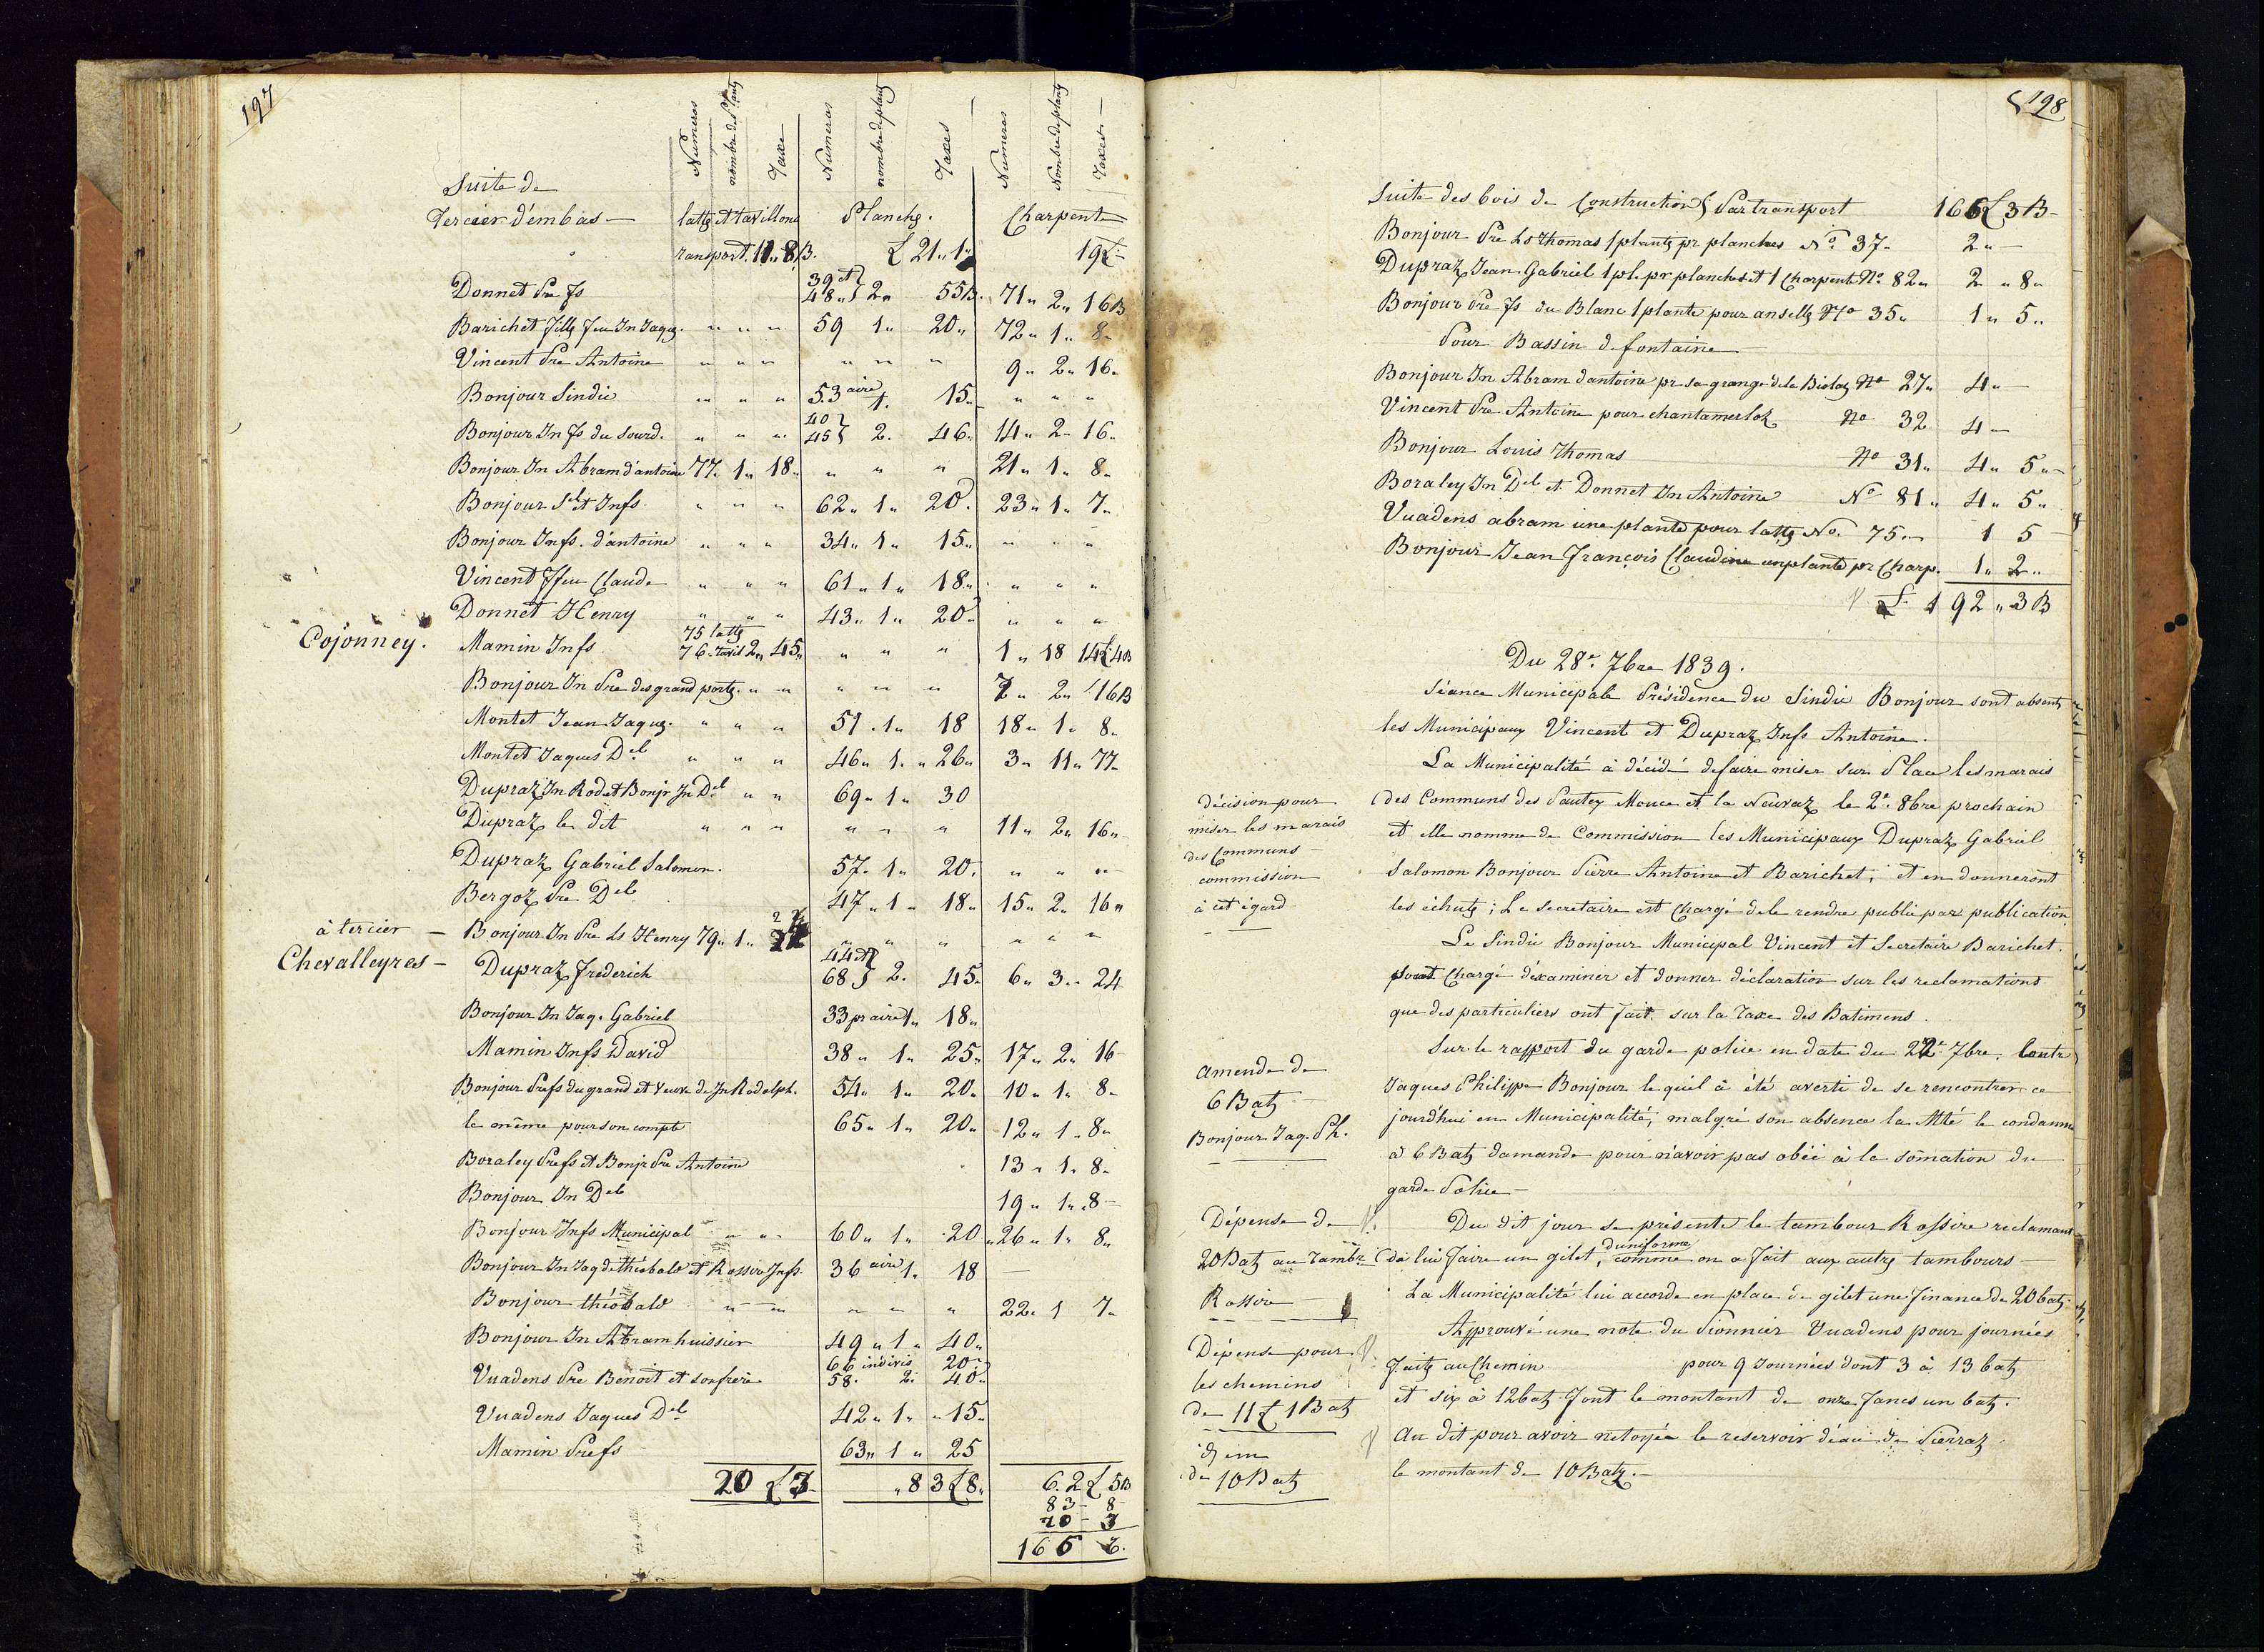 197
Numeros nombre des Plants Taxe Numeros nombre de plants Taxes Numeros Nombre de plants Taxes
Suite de
Tercier d'embas — latts et tavillons Planches. Charpente
ransport. 11 " 8 B. £ 21 " 1 " 19 £ -
Donnet Pre fs 39 et 48 " } 2 " 55 B. 71 " 2 " 16 B
Barichet fills feu Jn Jaqs. " " " 59 1 " 20 " 72 " 1 " 8 -
Vincent Pre Antoine " " " " " " 9 " 2 " 16 -
Bonjour Sindic " " " 53 aire 1. 15 " " " "
Bonjour Jn fs du sourd. " " " 40 } 45 } 2. 46 " 14 " 2 " 16 "
Bonjour Jn Abram d'antoine 77. 1 " 18 " " " " 21 " 1 " 8 "
Bonjour Sl et Jnfs. " " " 62 " 1 " 20. 23 " 1 " 7 "
Bonjour Jnfs. d'antoine " " " 34 " 1 " 15 " " " "
Vincent ffeu Claude " " " 61 " 1 " 18 " " " "
Donnet Henry " " " 43 " 1 " 20 " " " "
Cojonney. Mamin Jnfs 75 latts 76 tavil 2 " 45 " " " " 1 " 18 14 £ 4 B
Bonjour Jn Pre des grand ports. " " " " " 2 " 2 " 16 B
Montet Jean Jaques. " " " 51 . 1 " 18 18 " 1 " 8 "
Montet Jaques Del " " " 46 " 1 " 26 " 3 " 11 " 77 "
Dupraz Jn Rod et Bonjr Jn Del " " 69 " 1 " 30
Dupraz le dit " " " " " " 11 " 2 " 16 "
Dupraz Gabriel Salomon. 57 " 1 " 20. " " "
Bergoz Pre Del 47 " 1 " 18 " 15 " 2 " 16 "
à tercier — Bonjour Jn Pre Ls Henry 79 " 1 " " " " " " "
Chevalleyres — Dupraz Frederich 44 et 68 } 2. 45 " 6 " 3 " 24
Bonjour Jn Jaq. Gabriel 33 pr aire 1 " 18 "
Mamin Jnfs David 38 " 1 " 25 " 17 " 2 " 16
Bonjour Prefs du grand et veuve de Jn Rodolph. 54 " 1 " 20 " 10 " 1 " 8 "
le même pour son compte 65 " 1 " 20 " 12 " 1 " 8 "
Boraley Prefs et Bonjr Pre Antoine 13 " 1 " 8 "
Bonjour Jn Del 19 " 1 " 8 -
Bonjour Jnfs Municipal " " " 60 " 1 " 20 " 26 " 1 " 8 "
Bonjour Jn Jaq de théobald et Rossire Jnfs. 36 aire 1. 18 —
Bonjour théobald " — " " " " 22 " 1 7 "
Bonjour Jn Abram huissier 49 " 1 " 40 "
Vuadens Pre Benoit et son frère 66 indivis 20 " 58. 2. 40 "
Vuadens Jaques Del 42 " 1 " " 15 "
Mamin Prefs 63 " 1 " 25
20 £ 3 " 83 £ 8 " 62 £ 5 B
83 - 8
20 - 3
165 6.
198
Suite des bois de Construction Par transport 166 £ 3 B -
Bonjour Pre Ls thomas 1 plants pr planches No 37 - 2 " -
Dupraz Jean Gabriel 1 pl. pr planches et 1 Charpente No 82 " 2 " 8 "
Bonjour Pre Fs du Blanc 1 plante pour ansells No 35 " 1 " 5 "
Pour Bassin de fontaine
Bonjour Jn Abram d'antoine pr sa grange de la Biolaz No 27 " 4 " —
Vincent Pre Antoine pour chantamerloz No 32 4 " —
Bonjour Louis Thomas No 31 " 4 " 5 " -
Boraley Jn Del et Donnet Jn Antoine No 81 " 4 " 5 "
Vuadens abram une plante pour latts No. 75 " 1 5
Bonjour Jean François Claudine unplante pr Charp. 1 " 2 "
£. 192 " 3 B
Du 28e. 7bre 1839.
Séance Municipale Présidence du Sindic Bonjour sont absents
les Municipaux Vincent et Dupraz Jnfs Antoine.
La Municipalité à décidé de faire miser sur Place les marais
décision pour miser les marais des Communs — commission à cet égard
des Communs des Pautex Mouce et la Neuvaz le 2e. 8bre prochain
et elle nomme de Commission les Municipaux Dupraz Gabriel
Salomon Bonjour Pierre Antoine et Barichet; et en donneront
les échuts; Le secretaire est Chargé de le rendre public par publication
Le Sindic Bonjour Municipal Vincent et Secretaire Barichet.
sont Chargé d'éxaminer et donner déclaration sur les reclamations
que des particuliers ont fait sur la Taxe des Batimens.
amende de 6 Batz Bonjour Jaq. Ph.
Sur le rapport du garde police en date du 22e 7bre. Contre
Jaques Philippe Bonjour le quel à été averti de se rencontrer ce
jourd'hui en Municipalité, malgré son absence la Mté le condamne
à 6 Batz damande pour n'avoir pas obéi à la somation du
garde Police —
Dépense de 20 Batz au Tambr Rossire
Du dit jour se présente le tambour Rossire reclamant
de lui faire un gilet, duniforme comme on a fait aux autres tambours —
La Municipalité lui accorde en place de gilet une finance de 20 batz
Dépense pour les chemins de 11 £ 1 Batz
Approuvé une note du Pionnier Vuadens pour journées
faits au Chemin pour 9 Journées dont 3 à 13 batz
et six à 12 batz font le montant de onze francs un batz.
idem de 10 Batz
Au dit pour avoir netoyée le reservoir d'eau de Pierraz
le montant de 10 Batz. —